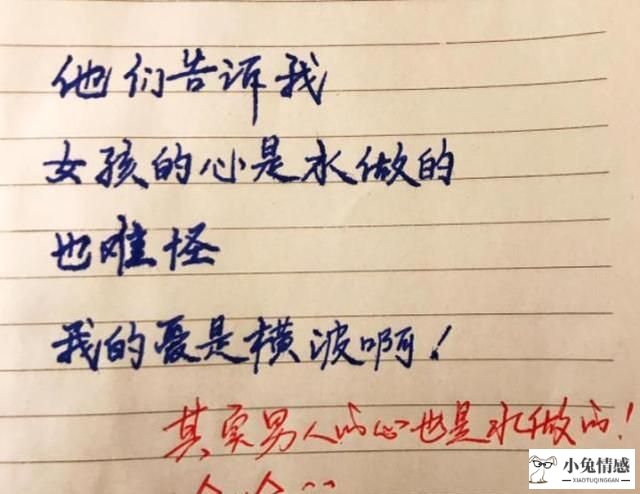 他们告诉我
女孩的心是水做的
也难怪
我的爱是横波啊!
其实男人的心也是水做的!
小兔情感
XIAOTUQINGGAN